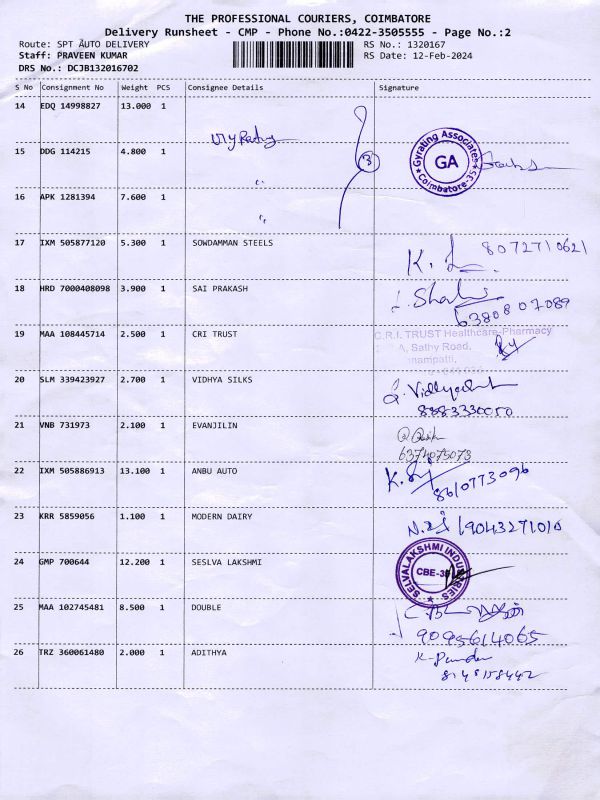 THE PROFESSIONAL COURIERS, COIMBATORE
Delivery Runsheet - CMP - Phone No.:0422-3505555 - Page No.:2
Route: SPT AUTO DELIVERY RS No.: 1320167
Staff: PRAVEEN KUMAR RS Date: 12-Feb-2024
DRS No.: DCJB132016702
S No Consignment No Weight PCS Consignee Details Signature
14 EDQ 14998827 13.000 1
15 DDG 114215 4.800 1 3 Gyrating Associates GA Coimbatore-35
16 APK 1281394 7.600 1
17 IXM 505877120 5.300 1 SOWDAMMAN STEELS K. 8072710621
18 HRD 7000408098 3.900 1 SAI PRAKASH
6380807089
19 MAA 108445714 2.500 1 CRI TRUST C.R.I. TRUST Healthcare-Pharmacy
A, Sathy Road,
20 SLM 339423927 2.700 1 VIDHYA SILKS
8883330050
21 VNB 731973 2.100 1 EVANJILIN
6374075073
22 IXM 505886913 13.100 1 ANBU AUTO K.
8610773096
23 KRR 5859056 1.100 1 MODERN DAIRY 9043271010
24 GMP 700644 12.200 1 SESLVA LAKSHMI SELVALAKSHMI INDUSTRIES CBE-
25 MAA 102745481 8.500 1 DOUBLE
9095614065
26 TRZ 360061480 2.000 1 ADITHYA
8148158442